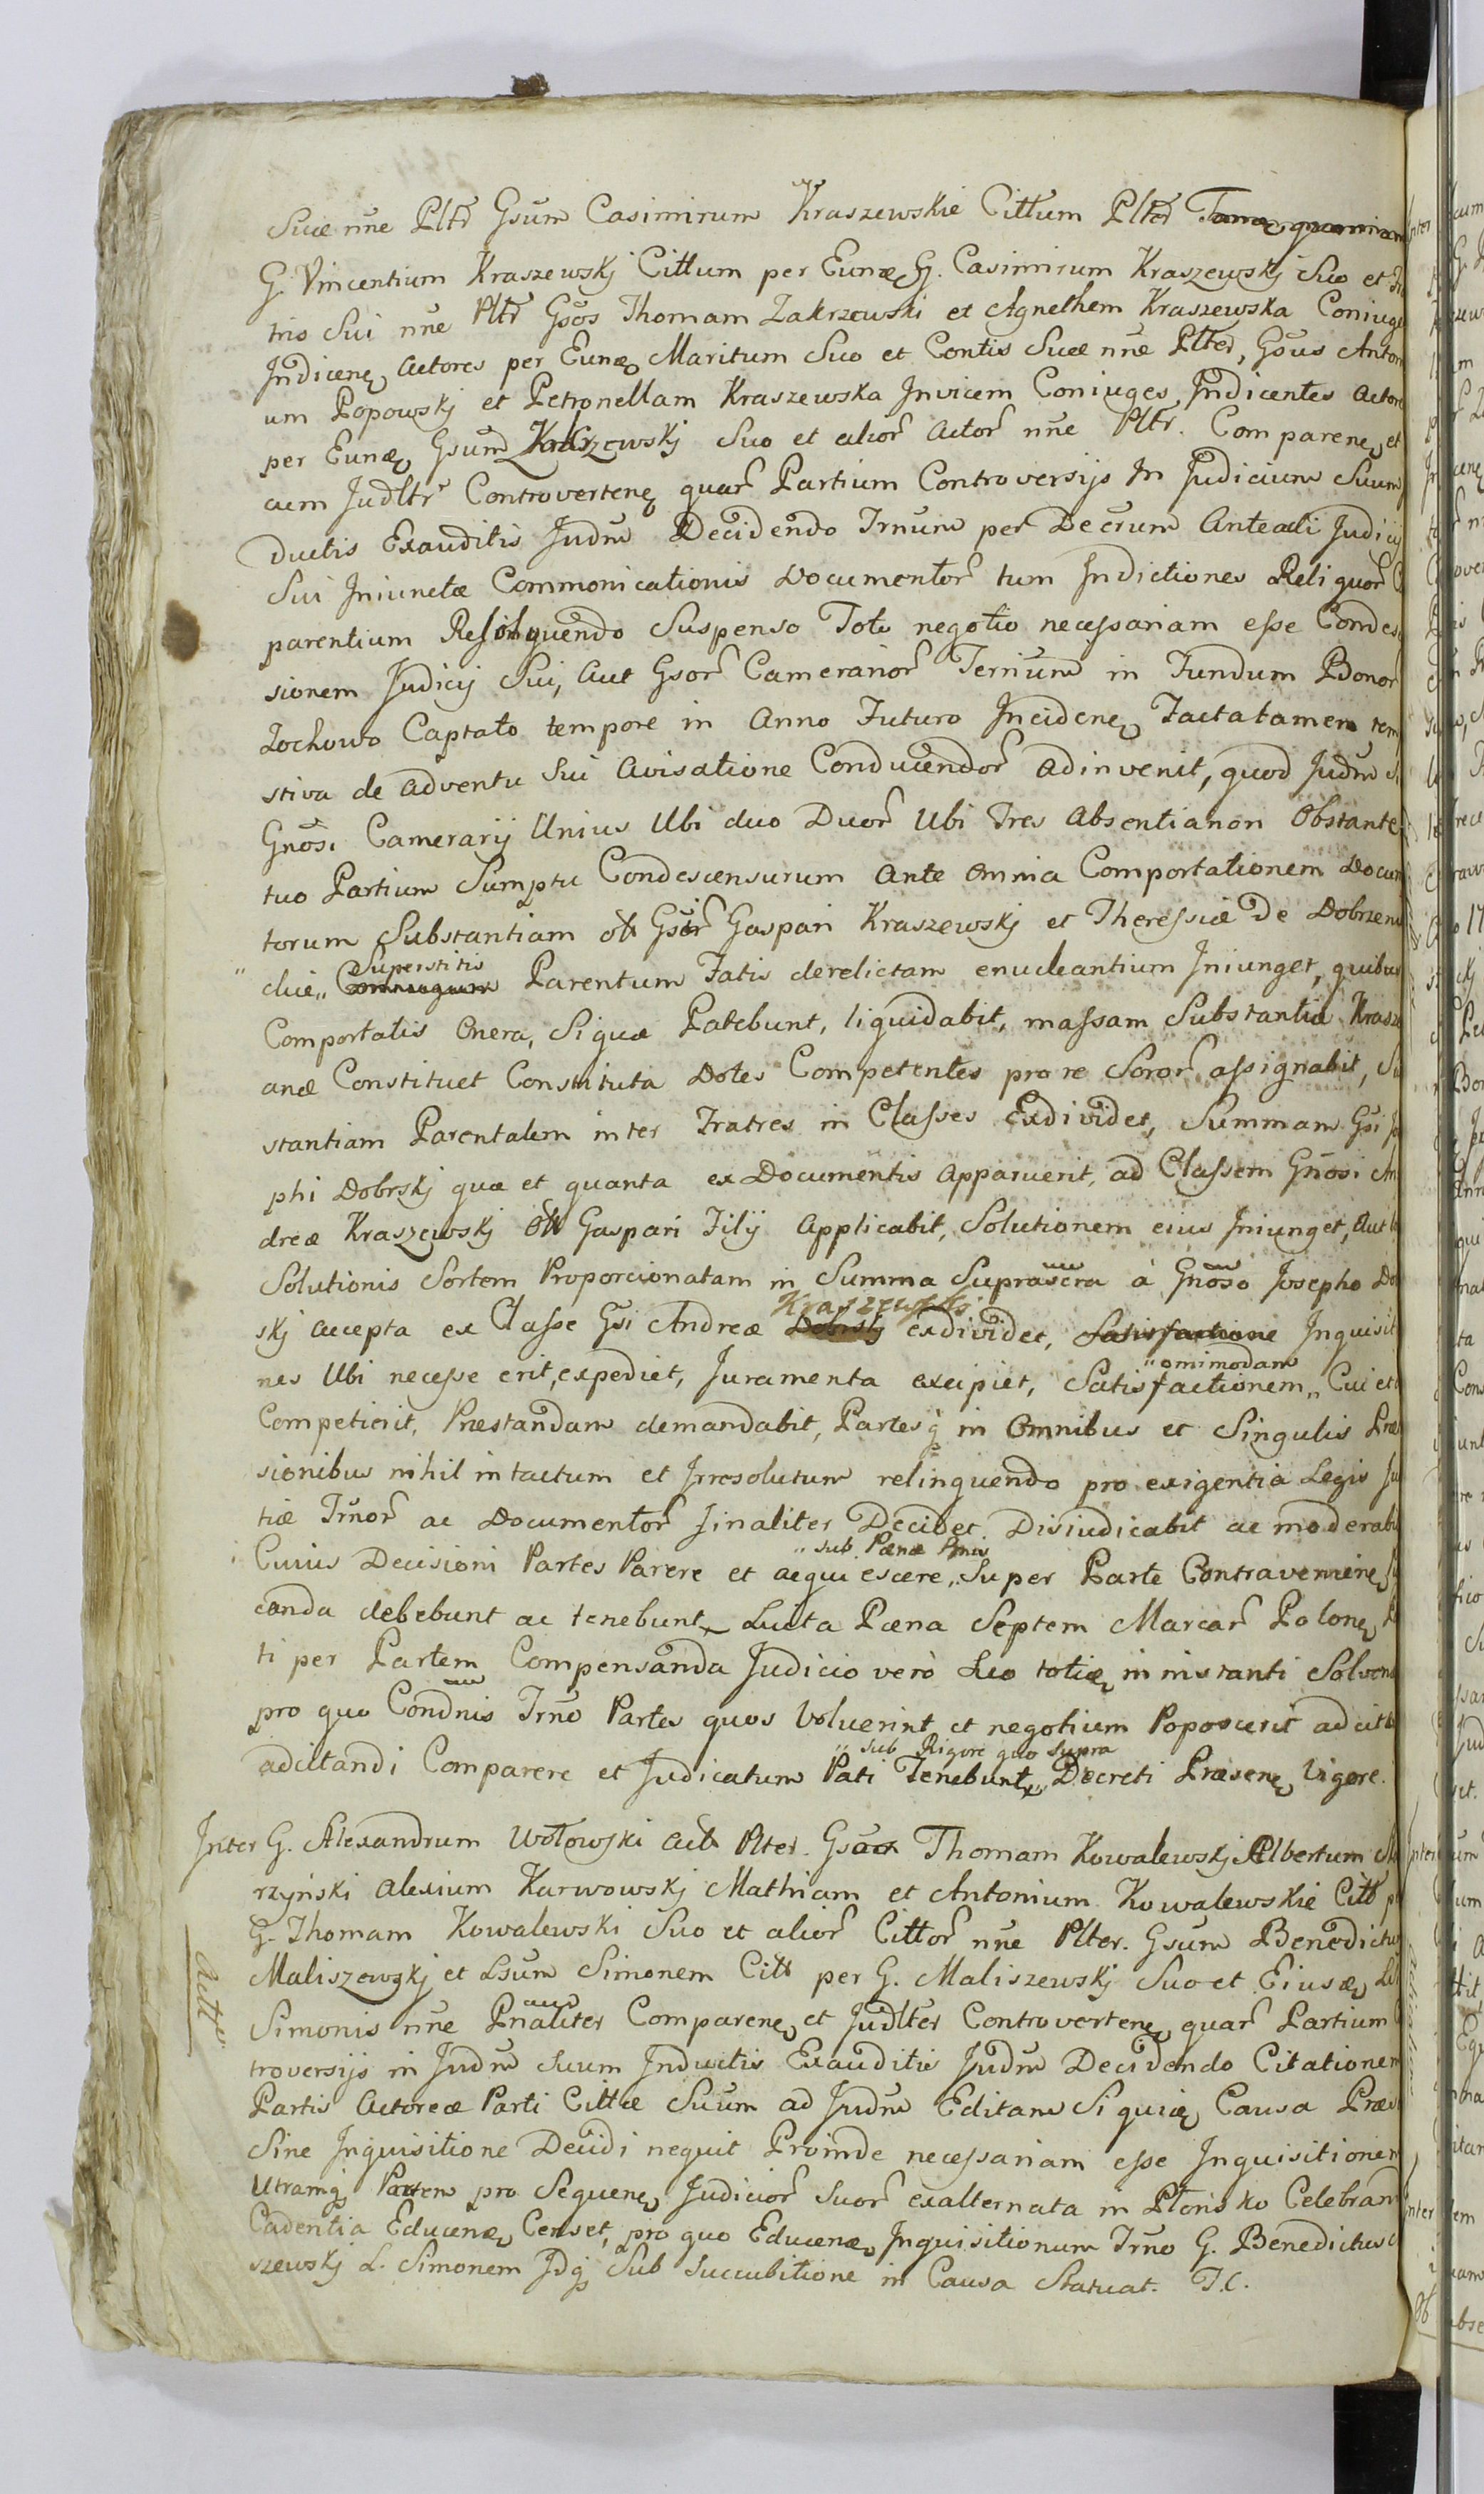 Suæ nne Pltr Gsum Casimirum Kraszewskie Cittum Plter
G. Vincentium Kraszewskj Cittum per Eunæ G. Casimirum Kraszewskj Suo et
tris Sui nne Pltr Gsos Thomam Zakrzewski et Agnethem Kraszewska Coniuge
Indicenę Actores per Eunæ Maritum Suo et Contis Suæ nne Plter, Gsus Anton
um Popowskj et Petronellam Kraszewska Invicem Coniuges Indicentes Actore
per Eunę Gsum Zakrzewskj Suo et alior Actor nne Pltr. Comparenę et
cum Judltr Controvertenę quar Partium Controversijs In Judicium Suum
ductis Exauditis Judm Decidendo Trnum per Decrum Anteacti Judicij
Sui Iniunctæ Commonicationis Documentor tum Indictiones Reliquor
parentium Resolquendo Suspenso Toto negotio necessariam esse Condes
sionem Judicij Sui, Aut Gsor Camerarior Ternum in Fundum Bonor
Zochowo Captato tempore in Anno Futuro Incidenę Facta tamen tem
stiva de adventu Sui Avisatione Conducendor adinvenit, quod Judm
Gnosi Camerarij Unius Ubi duo Duor Ubi Tres Absentia non Obstante
tuo Partium Sumptu Condescensurum Ante Omnia Comportationem Docum
torum Substantiam ott Gsor Gaspari Kraszewskj et Theressiæ De Dobrzens
" Superstitis
cluie,, Coniugum Parentum Fatis derelictam enucleantium Iniunget, quibus
Comportatis Onera, Siquæ Patebunt, liquidabit, massam Substantiæ Krasze
anæ Constituet Constituta Dotes Competentes pro re Soror assignabit, Su
stantiam Parentalem inter Fratres in Classes Exdividet, Summam Gsi
phi Dobrskj quæ et quanta ex Documentis apparuerit, ad Classem Gnosi An
dreæ Kraszewskj Ott Gaspari Filij Applicabit, Solutionem eius Iniunget, Aut
Solutionis Sortem Proporcionatam in Summa Suprascra à Gnoso Josepho Do
Kraszewski
skj accepta ex Classe Gsi Andreæ Dobrskj exdividet, Satisfactione Inquisit
" omimodam
nes Ubi necesse erit, expediet, Juramenta excipiet, Satisfactionem,, Cui et
Competierit, Præstandam demandabit, Partesq in Omnibus et Singulis Præ
sionibus nihil intactum et Irresolutum relinquendo pro exigentia Legis Ju
tiæ Trnor ac Documentor finaliter Decidet. Disiudicabit ac moderabi
" sub Pænæ
Cuius Decisioni Partes Parere et acquiescere,, Super Parte Contravenienę
canda debebunt ac tenebuntr Luita Pæna Septem Marcar Polonę
ti per Partem Compensanda Judicio verò Leo totiæ in instanti Solven
pro quo Condnis Trno Partes quos Voluerint et negotium Poposcerit adcit
" sub Rigore quo supra
adcittandi Comparere et Judicatum Pati Tenebuntr,, Decreti Præsenę Vigore.
Inter G. Alexandrum Wołowski Act Plter. Gsos Thomam Kowalewskj Albertum
rzyński Alexium Karwowskj Mathiam et Antonium Kowalewskie Citt
G. Thomam Kowalewski Suo et alior Cittor nne Plter. Gsum Benedictu
Actt
Maliszewskj et Lsum Simonem Citt per G. Maliszewskj Suo et Eiusæ
Simonis nne Pnaliter Comparenę et Judlter Controvertenę quar Partium
troversijs in Judm Suum Inductis Exauditis Judm Decidendo Citationem
Partis Actoreæ Parti Cittæ Suum ad Judm Editam Siquię Causa Præs
Sine Inquisitione Decidi nequit Proinde necessariam esse Inquisitionem
Utramq Partem pro Sequenę Judicior Suor exalternata in Plonsko Celebran
Cadentia Educenæ Censet, pro quo Educenæ Inquisitionum Trno G. Benedictus
szewskj L. Simonem Idq Sub Succubitione in Causa Statuat. T.C.